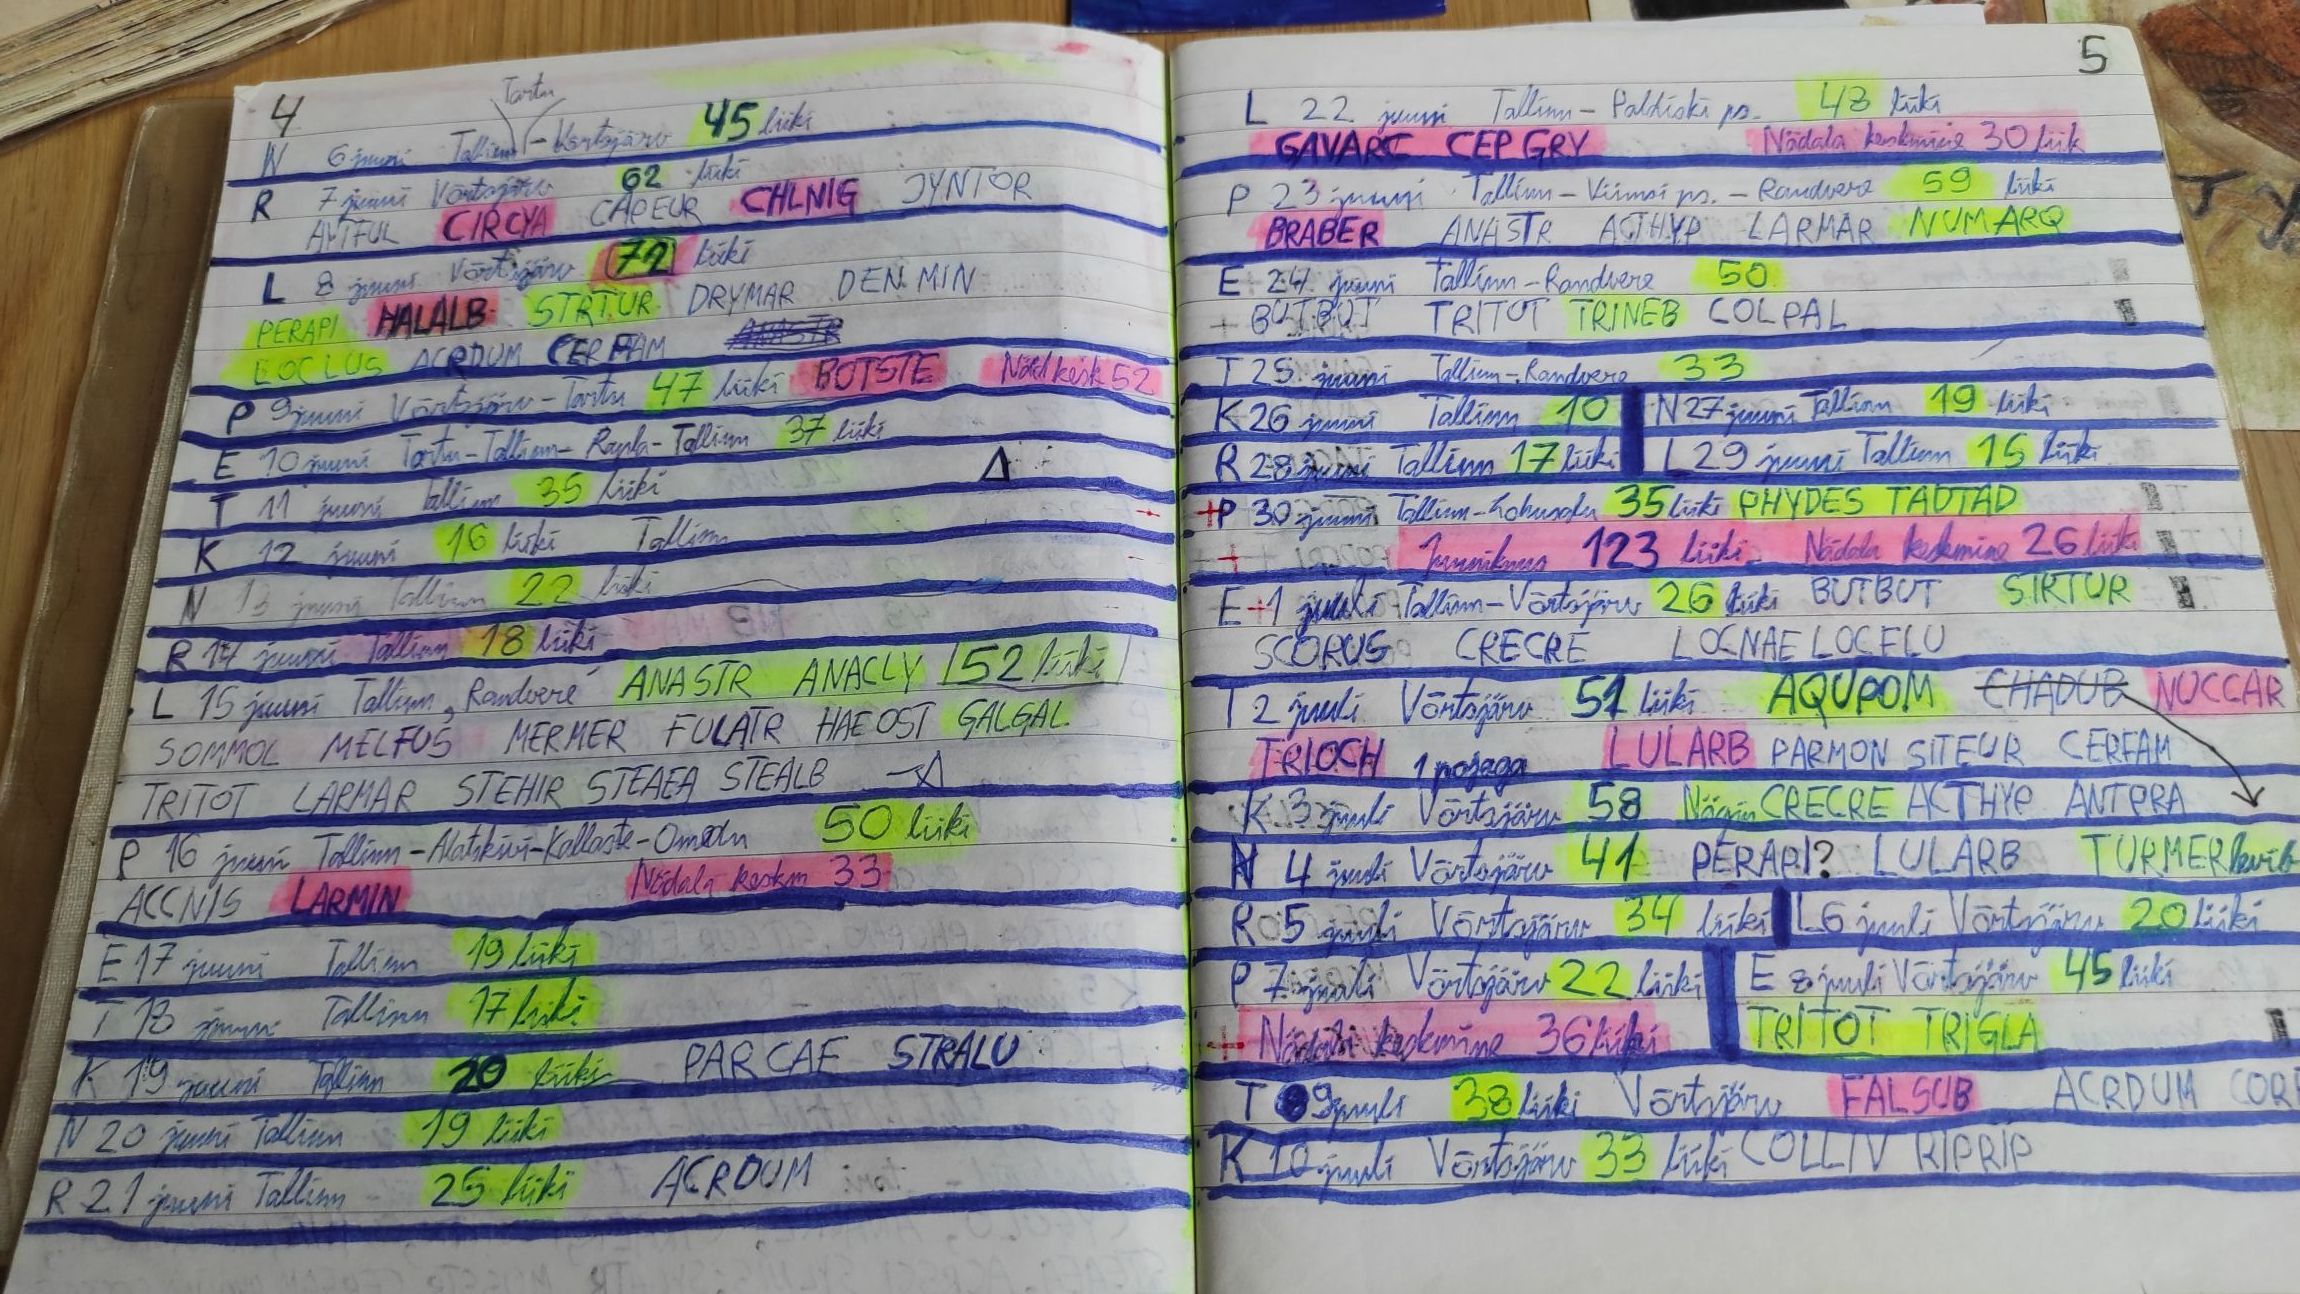 4
Tartu
N 6 juuni Tallinn - Võrtsjärv 45 liiki
R 7 juuni Võrtsjärv 62 liiki
AYTFUL CIRCYA CAPEUR CHLNIG JYNTOR
L 8 juuni Võrtsjärv 72 liiki
PERAPI HALALB STRTUR DRYMAR DENMIN
LOCLUS ACRDUM CERFAM
P 9 juuni Võrtsjärv - Tartu 47 liiki BOTSTE Näd kesk 52
E 10 juuni Tartu-Tallinn-Rapla-Tallinn 37 liiki
T 11 juuni Tallinn 35 liiki
K 12 juuni 16 liiki Tallinn
N 13 juuni Tallinn 22 liiki
R 14 juuni Tallinn 18 liiki
L 15 juuni Tallinn, Randvere ANASTR ANACLY 52 liiki
SOMMOL MELFUS MERMER FULATR HAEOST GALGAL
TRITOT LARMAR STEHIR STEAEA STEALB
P 16 juuni Tallinn-Alatskivi-Kallaste-Omedu 50 liiki
ACCNIS LARMIN Nädala keskm 33
E 17 juuni Tallinn 19 liiki
T 18 juuni Tallinn 17 liiki
K 19 juuni Tallinn 20 liiki PARCAE STRALU
N 20 juuni Tallinn 19 liiki
R 21 juuni Tallinn 25 liiki ACRDUM
5
L 22 juuni Tallinn - Paldiski ps. 48 liiki
GAVARC CEPGRY Nädala keskmine 30 liik
P 23 juuni Tallinn - Viimsi ps. - Randvere 59 liiki
BRABER ANASTR ACTHYP LARMAR NUMARQ
E 24 juuni Tallinn-Randvere 50
BUTBUT TRITOT TRINEB COLPAL
T 25 juuni Tallinn-Randvere 33
K 26 juuni Tallinn 10 N 27 juuni Tallinn 19 liiki
R 28 juuni Tallinn 17 liiki L 29 juuni Tallinn 15 liiki
+P 30 juuni Tallinn-Lohusalu 35 liiki PHYDES TADTAD
+ Juunikuus 123 liiki Nädala keskmine 26 liiki
E 1 juuli Tallinn-Võrtsjärv 26 liiki BUTBUT STRTUR
SCORUS CRECRE LOCNAE LOCFLU
T 2 juuli Võrtsjärv 51 liiki AQUPOM CHADUB NUCCAR
TRIOCH 1 pesaga LULARB PARMON SITEUR CERFAM
K 3 juuli Võrtsjärv 58 Nägin CRECRE ACTHYP ANTPRA
N 4 juuli Võrtsjärv 41 PERAPI? LULARB TURMER
R 05 juuli Võrtsjärv 34 liiki L 6 juuli Võrtsjärv 20 liiki
P 7 juuli Võrtsjärv 22 liiki E 8 juuli Võrtsjärv 45 liiki
+ Nädala keskmine 36 liiki TRITOT TRIGLA
T 9 juuli 38 liiki Võrtsjärv FALSUB ACRDUM COR
K 10 juuli Võrtsjärv 33 liiki COLLIV RIPRIP